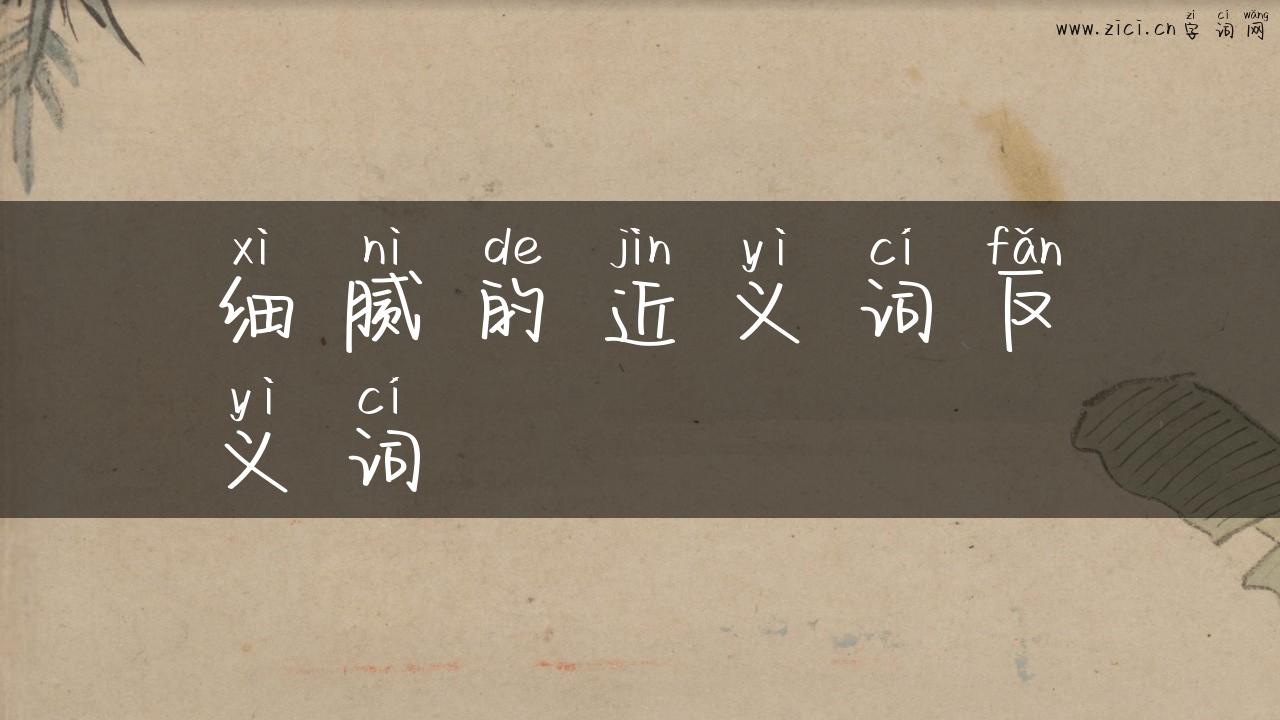 zì cí wǎng
www.zici.cn 字 词 网
xì nì de jìn yì cí fǎn
细 腻 的 近 义 词 反
yì cí
义 词